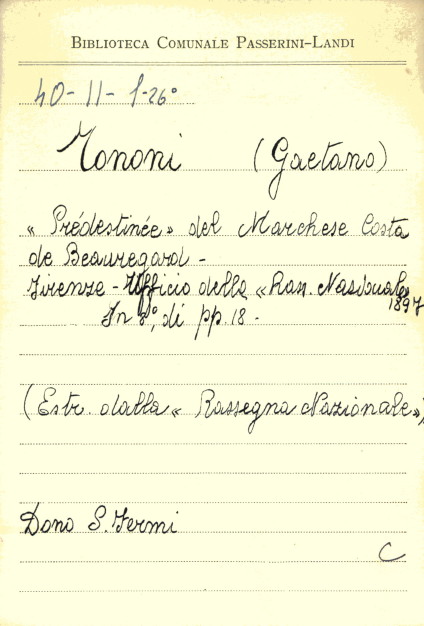 BIBLIOTECA COMUNALE PASSERINI-LANDI
40-11-f-26°
Tononi (Gaetano)
« Prédestinée » del Marchese Costa
de Beauregard -
Firenze - Ufficio della « Ras. Nazionale
1897
In 8°, di pp. 18 -
(Estr. dalla « Rassegna Nazionale »)
Dono S. Fermi
C